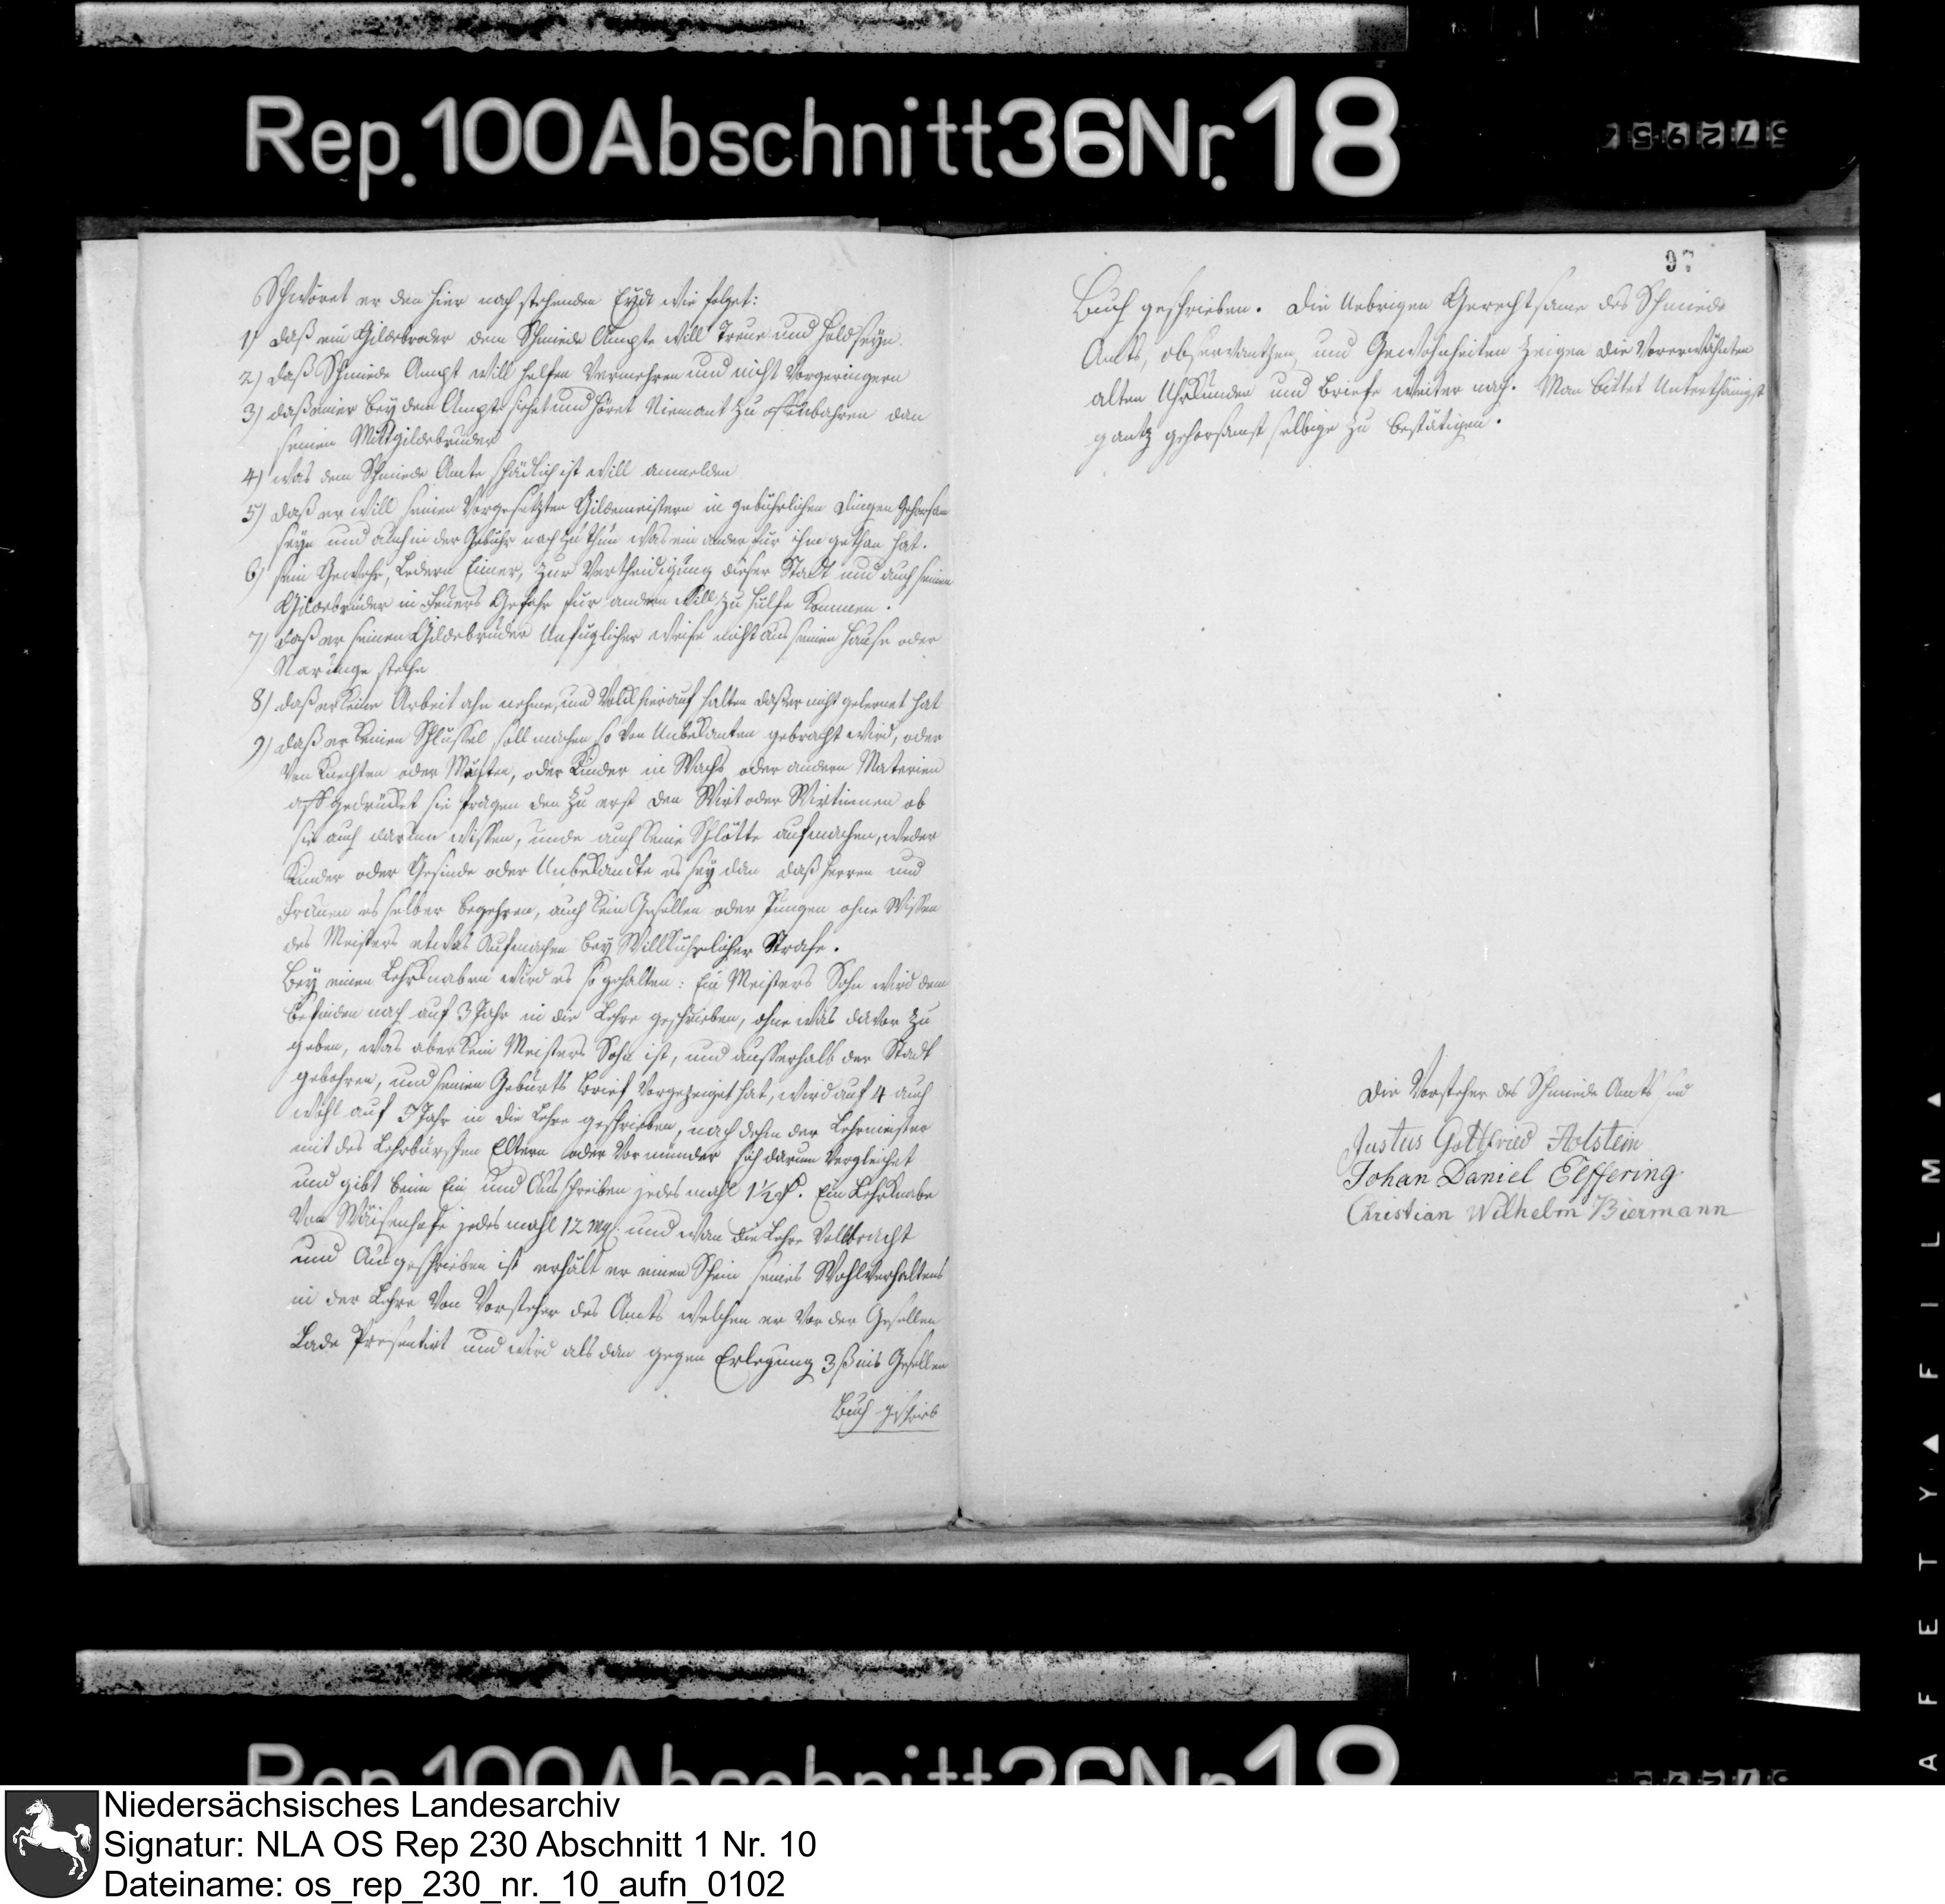 Rep. 100 Abschnitt 36 Nr. 18
Schwöret er den hier nach stehenden Eydt wie folget:
1) daß ein Gildebroder dem Schmiede Ampte will Treue und hold seyn.
2) daß Schmiede Ampt will helfen Vermehren und nicht Vorgeringern
3) daß einer bey dem Ampte siehet und höret Niemant zu offenbahren dan
seinen Mittgildebruder
4) was dem Schmiede Amte schädlich ist will anmelden
5) daß er will seinen Vorgesetzten Gildemeistern in gebührlichen Dingen gehorsam
seyn und auch in der Gebühr nach zu thun was ein ander für ihm gethan hat.
6) sein Gewehr, Ledern Eimer, zur Vertheidigung dieser Stadt und auch seinen
Gildebruder in Feuers Gefahr für andern will zu hülfe kommen.
7) daß er seinen Gildebruder Unfuglicher weise nicht aus seinen Hause oder
Narunge steche
8) daß er keine Arbeit ahn nehme, und Volck hierauf halten daß er nicht gelernet hat
9) daß er keinen Schlüssel soll machen so von Unbekanten gebracht wird, oder
Von Knechten oder Mägten, oder Kinder in Wachs oder andern Materien
aff gedrücket sie fragen den zu erst den Wirt oder Wirtinnen ob
sie auch darum wissen, unde auch keine Schlötte aufmachen, weder
Kinder oder Gesinde oder Unbekandte es sey dan daß Herren und
Frauen es selber begehren, auch kein Gesellen oder Jungen ohne Wissen
des Meisters etwas Aufmachen bey Willkuhrlicher Strafe.
Bey einen Lehrknaben wird es so gehalten: Ein Meisters Sohn wird dem
befinden nach auf 3 Jahr in die Lehre geschrieben, ohne was davor zu
geben, was aber kein Meisters Sohn ist, und ausserhalb der Stadt
gebohren, und seinen Geburts Brief Vorgezeiget hat, wird auf 4 auch
wohl auf 5 Jahr in die Lehre geschrieben, nach dehm der Lehrmeister
mit des Lehrburschen Eltern oder Vormünder sich darum Vergleichet
und gibt beim Ein und Aus schreiben jedes mahl 1½ . Ein Lehrknabe
Von Waisenhofe jedes mahl 12 mg. und wan die Lehre Vollbracht
und Ausgeschrieben ist erhält er einen Schein seines Wohlverhaltens
in der Lehre Von Vorsteher des Amts welchen er Vor der Gesellen
Lade Presentirt und wird als dan gegen Erlegung 3 ß ins Gesellen
Buch geschrieb
97
Buch geschrieben. Die Uebrigen Gerechtsame des Schmiede
Amts, observantzen und Gewohnheiten zeigen die Vorerwähnten
alten Uhrkunden und Briefe weiter nach. Man bittet Unterthänigst
gantz gehorsamst selbige zu bestätigen.
Die Vorsteher des Schmiede Amts sind
Justus Gottfried Holstein
Johan Daniel Elffering
Christian Wilhelm Biermann
SAFETY ▲ FILM ▲
Rep. 100 Abschnitt 36 Nr. 18
Niedersächsisches Landesarchiv
Signatur: NLA OS Rep 230 Abschnitt 1 Nr. 10
Dateiname: os_rep_230_nr._10_aufn_0102